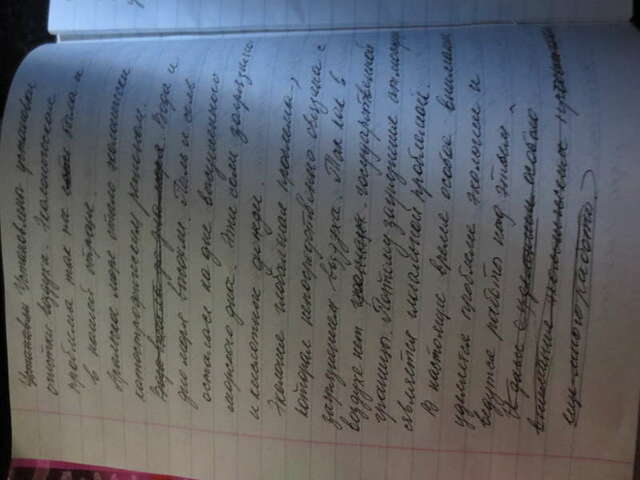 Установли Установлены установки
очистки воздуха. Экологическая
проблема так же была и
в нашей стране.
Аральское море стало экологически
катострофическим регионом.
Вода высохла до дна моря. Вода и
дно моря высохли. Пыль и соль
осталася на дне высушенного
морского дна. Эти соли загрязнили
и кислотные дожди.
Экология глобальная проблема,
которая непосредственно связана с
загрязнением воздуха. Так как в
воздухе нет государственной
границы. Поэтому загрязнения атмосферы
является глобальной проблемой.
В настоящие время особое внимания
уделяется проблема экологии и
ведутся работы над этим
И даже особого
внимания экологическим
еще много работы.